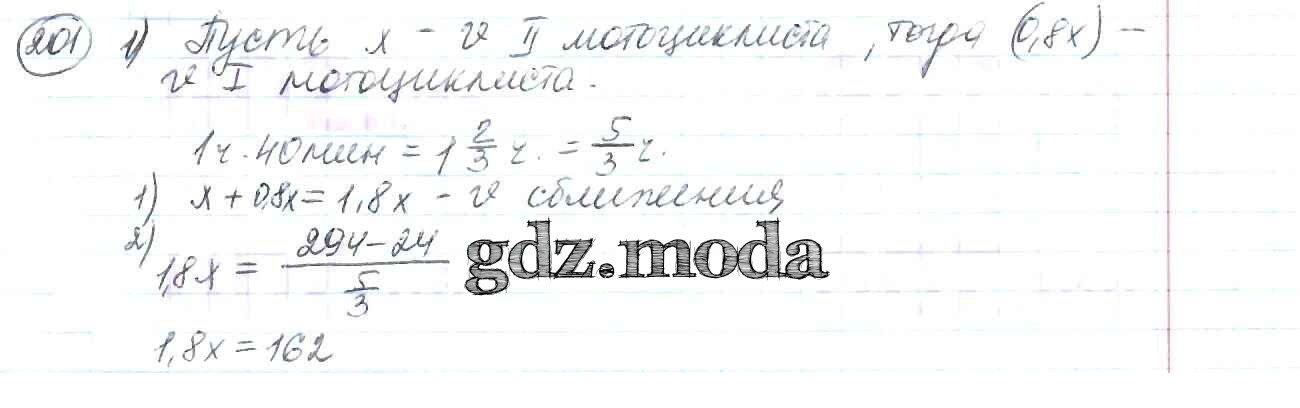 201 1) Пусть x – v II мотоциклиста, тогда (0,8x) –
v I мотоциклиста.
1 ч. 40 мин = 1 2/3 ч. = 5/3 ч.
1) x + 0,8x = 1,8x – v сближения
2) 1,8x = (294–24)/(5/3)
gdz.moda
1,8x = 162